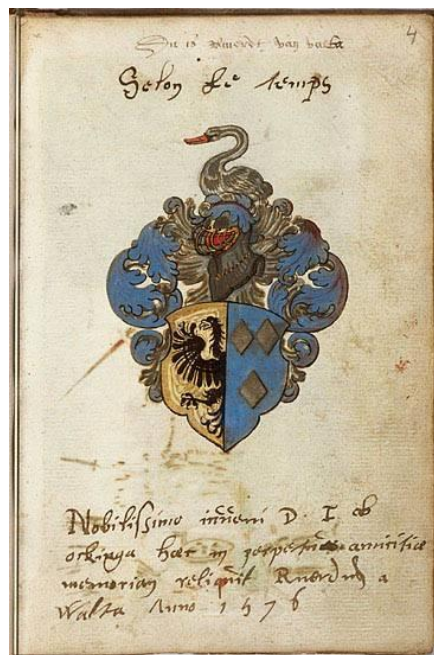 4
Dit is ruierdt van valta
Selon le temps
Nobilissimo iuveni D. I ab
ockinga hæc in perpetuæ amicitiæ
memoriam reliquit Ruerdus a
Walta Anno 1576